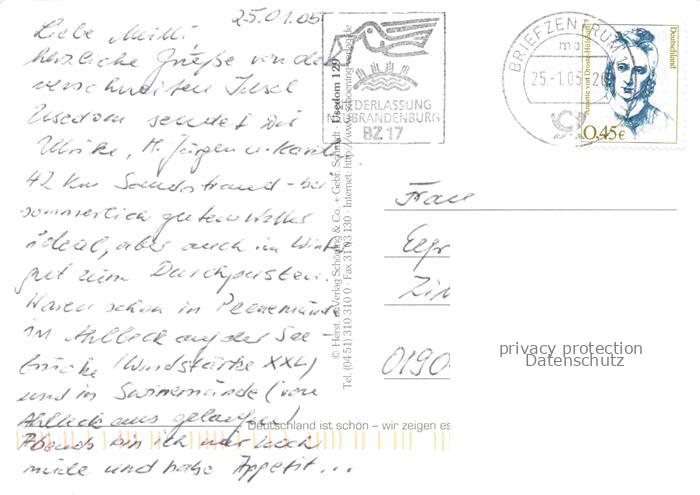 25.01.05
Liebe Milli
herzliche Grüße von der
verschneiten Insel
Usedom sendet Dir
Ulrike, H. Jürgen u.
42 km Sandstrand - bei
sommerlich gutem Wetter
ideal, aber auch im Winter
gut zum Durchpusten.
Waren schon in Peenemünde
in Ahlbeck auf der See-
brücke (Windstärke XXL)
und in Swinemünde (von
Ahlbeck aus gelaufen)
Abends bin ich nur noch
müde und habe Appetit...
© Herst. u. Verlag Schöning & Co. + Gebr. Schmidt · Usedom 129
Tel. (04 51) 310 310 0 · Fax 31 03 130 · Internet: http://www.schoening-verlag.de
Deutschland ist schön – wir zeigen es
NIEDERLASSUNG
BRANDENBURG
BZ 17
BRIEFZENTRUM
25-1.05-20
Deutschland
Annette von Droste-Hülshoff
0,45€
Frau
0190
privacy protection
Datenschutz